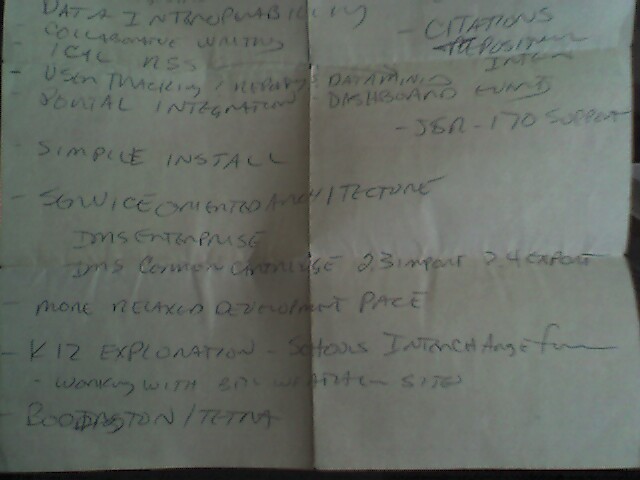 DATA INTEROPERABILITY
COLLABORATIVE WRITING
ICAL RSS
- USER TRACKING / REPORTS DATAMINING
PORTAL INTEGRATION DASHBOARD
- CITATIONS
REPOSITORY
- JSR-170 SUPPORT
- SIMPLE INSTALL
- SERVICE ORIENTED ARCHITECTURE
IMS ENTERPRISE
IMS COMMON CARTRIDGE 2.3 IMPORT 2.4 EXPORT
- MORE RELAXED DEVELOPMENT PACE
- K12 EXPLORATION - SCHOOLS INTERCHANGE
- WORKING WITH SITE
- / TETRA